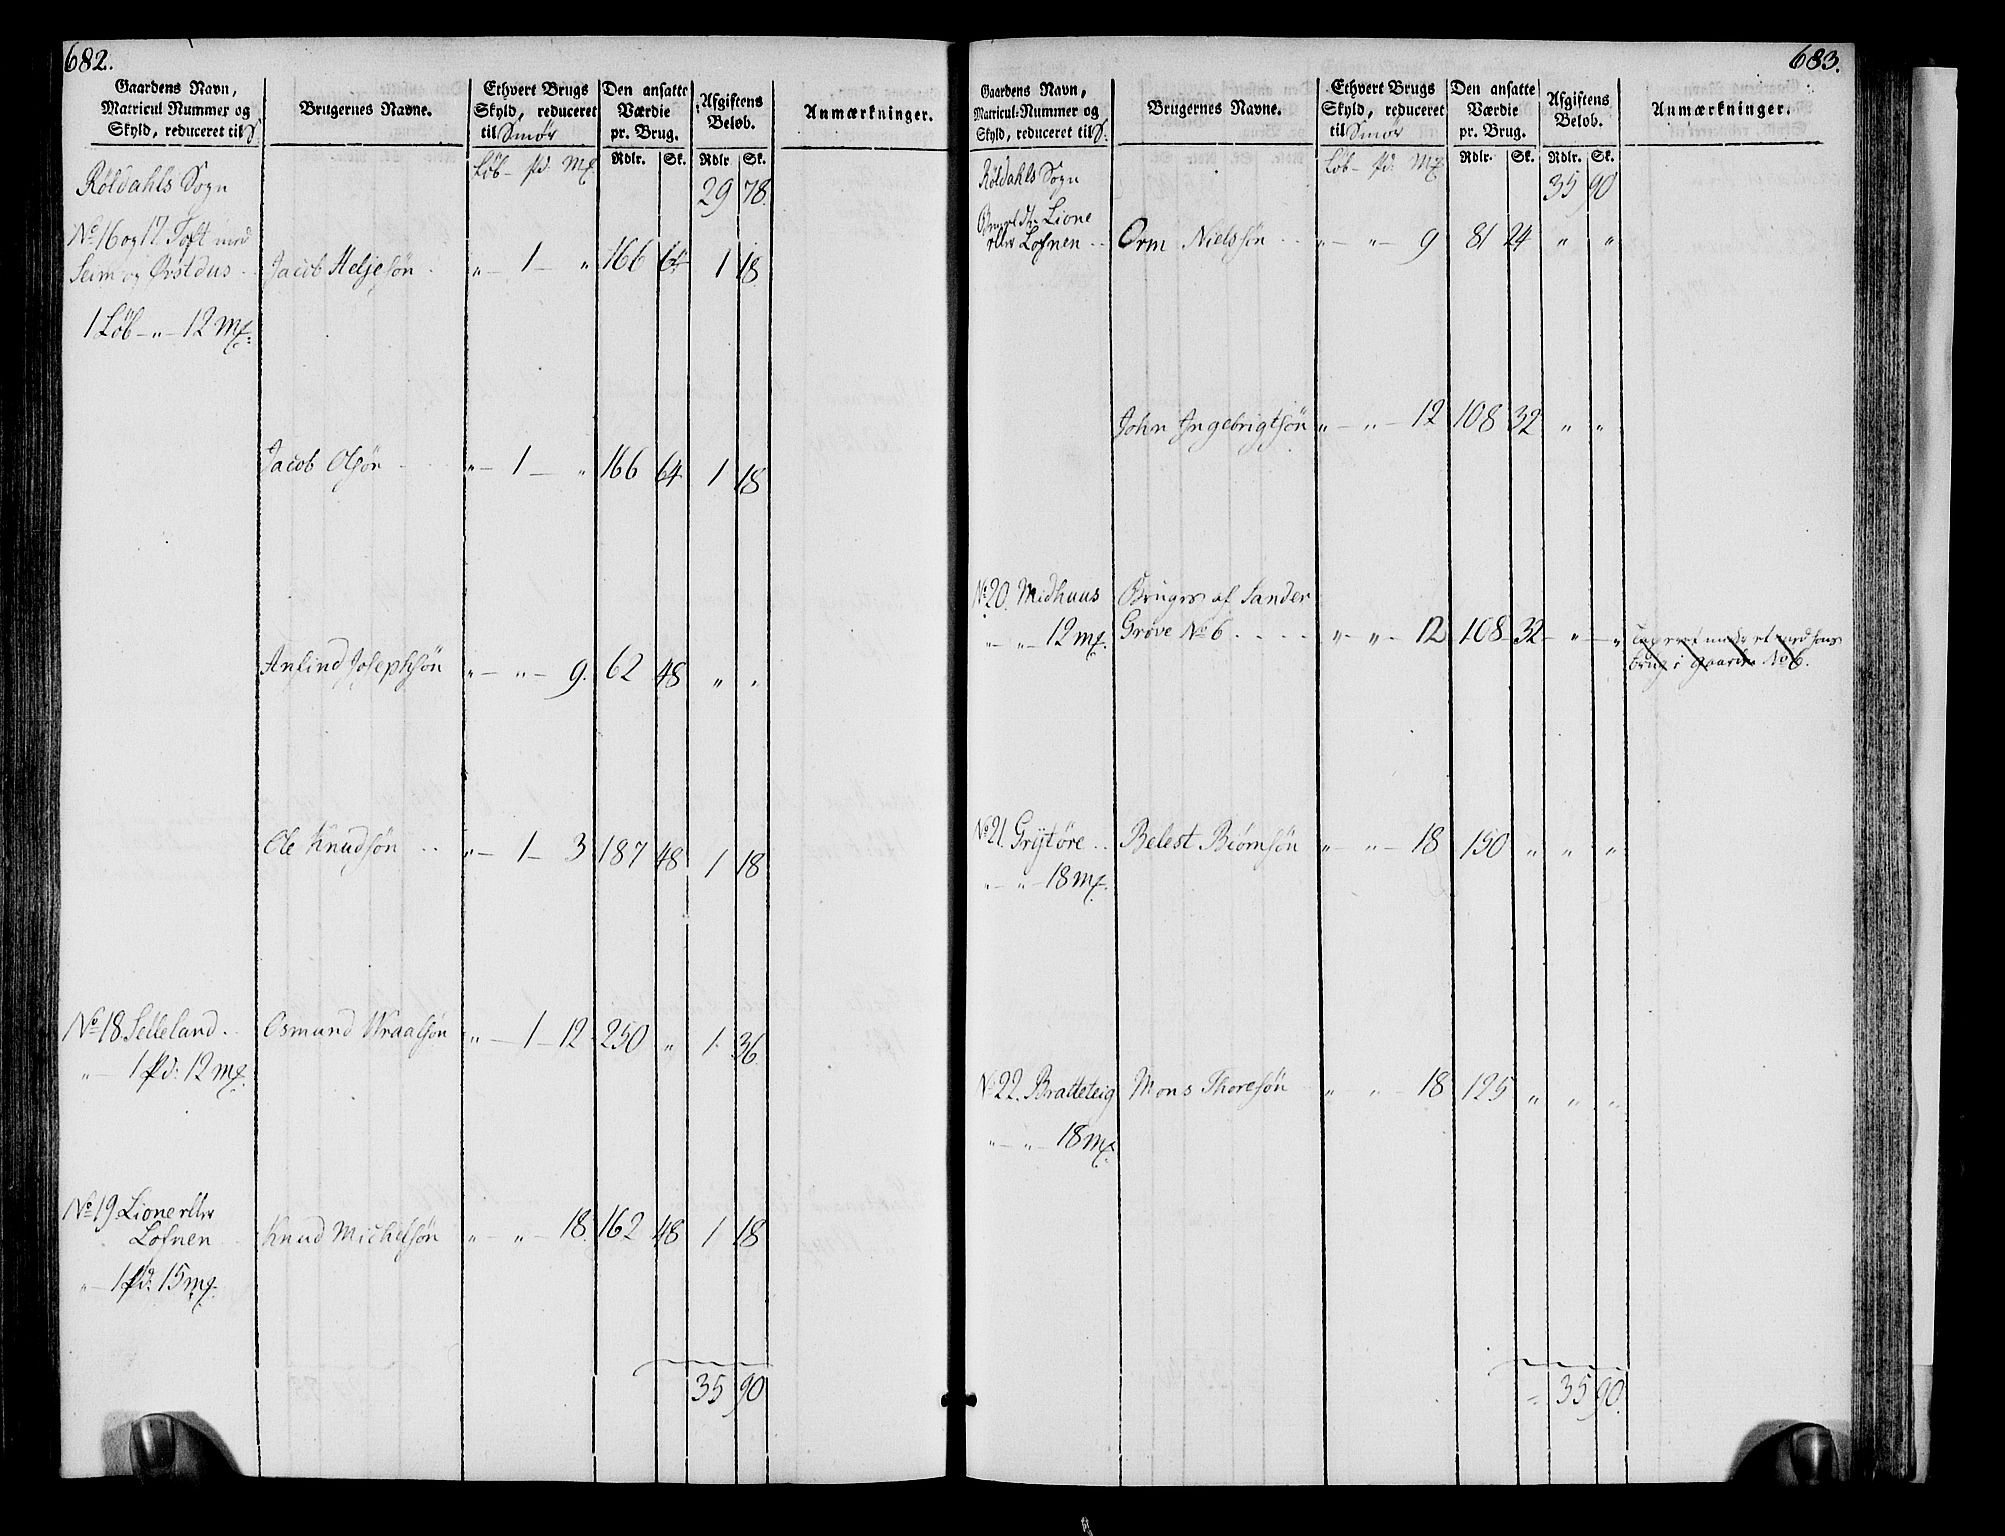 682.
Gaardens Navn, Matricul Nummer og Skyld, reduceret til S. | Brugernes Navne. | Ethvert Brugs Skyld, reduceret til Smør | Den ansatte Værdie pr. Brug. | Afgiftens Beløb. | Anmærkninger.
Løb - Pd. Mk. | Rdlr. | Sk. | Rdlr | Sk.
Röldahls Sogn | 29 | 78.
No 16 og 17. Toft med
Seim og Østdus | Jacob Heljesön | „ – 1 – „ | 166 | 64 | 1 | 18
1 Löb – „ – 12 mk.
Jacob Olsön | „ – 1 – „ | 166 | 64 | 1 | 18
Anfind Josephsön | „ – „ – 9. | 62 | 48 | „ | „
Ole Knudsön | „ – 1 – 3 | 187 | 48 | 1 | 18
No 18. Selleland | Osmund Wraalsön | „ – 1 – 12 | 250 | „ | 1 | 36
„ – 1 Pd: 12 mk.
No 19 Lione eller
Lofnen | Knud Michelsön | „ – „ – 18. | 162 | 48 | 1 | 18
„ – 1 Pd: 15 mk.
35 | 90
683.
Gaardens Navn, Matricul-Nummer og Skyld, reduceret til S. | Brugernes Navne. | Ethvert Brugs Skyld, reduceret til Smør | Den ansatte Værdie pr. Brug. | Afgiftens Beløb. | Anmærkninger.
Løb - Pd. Mk. | Rdlr. | Sk. | Rdlr. | Sk.
Röldahls Sogn | 35 | 90
Lione
eller Lofnen | Orm Nielssön | „ – „ – 9 | 81 | 24 | „ | „
John Ingebrigtsön | „ – „ – 12 | 108 | 32 | „ | „
No 20. Midhuus | Bruges af Sander
„ – „ – 12 mk. | Grøve No 6 | „ – „ – 12 | 108 | 32 | „ | „
brug i Gaarden No 6.
No 21. Grytöre | Belest Biörnsön | „ – „ – 18 | 150 | „ | „ | „
„ – „ – 18 mk.
No 22. Bratteteig | Mons Thoresön | „ – „ – 18 | 125 | „ | „ | „
„ – „ – 18 mk.
35 | 90.